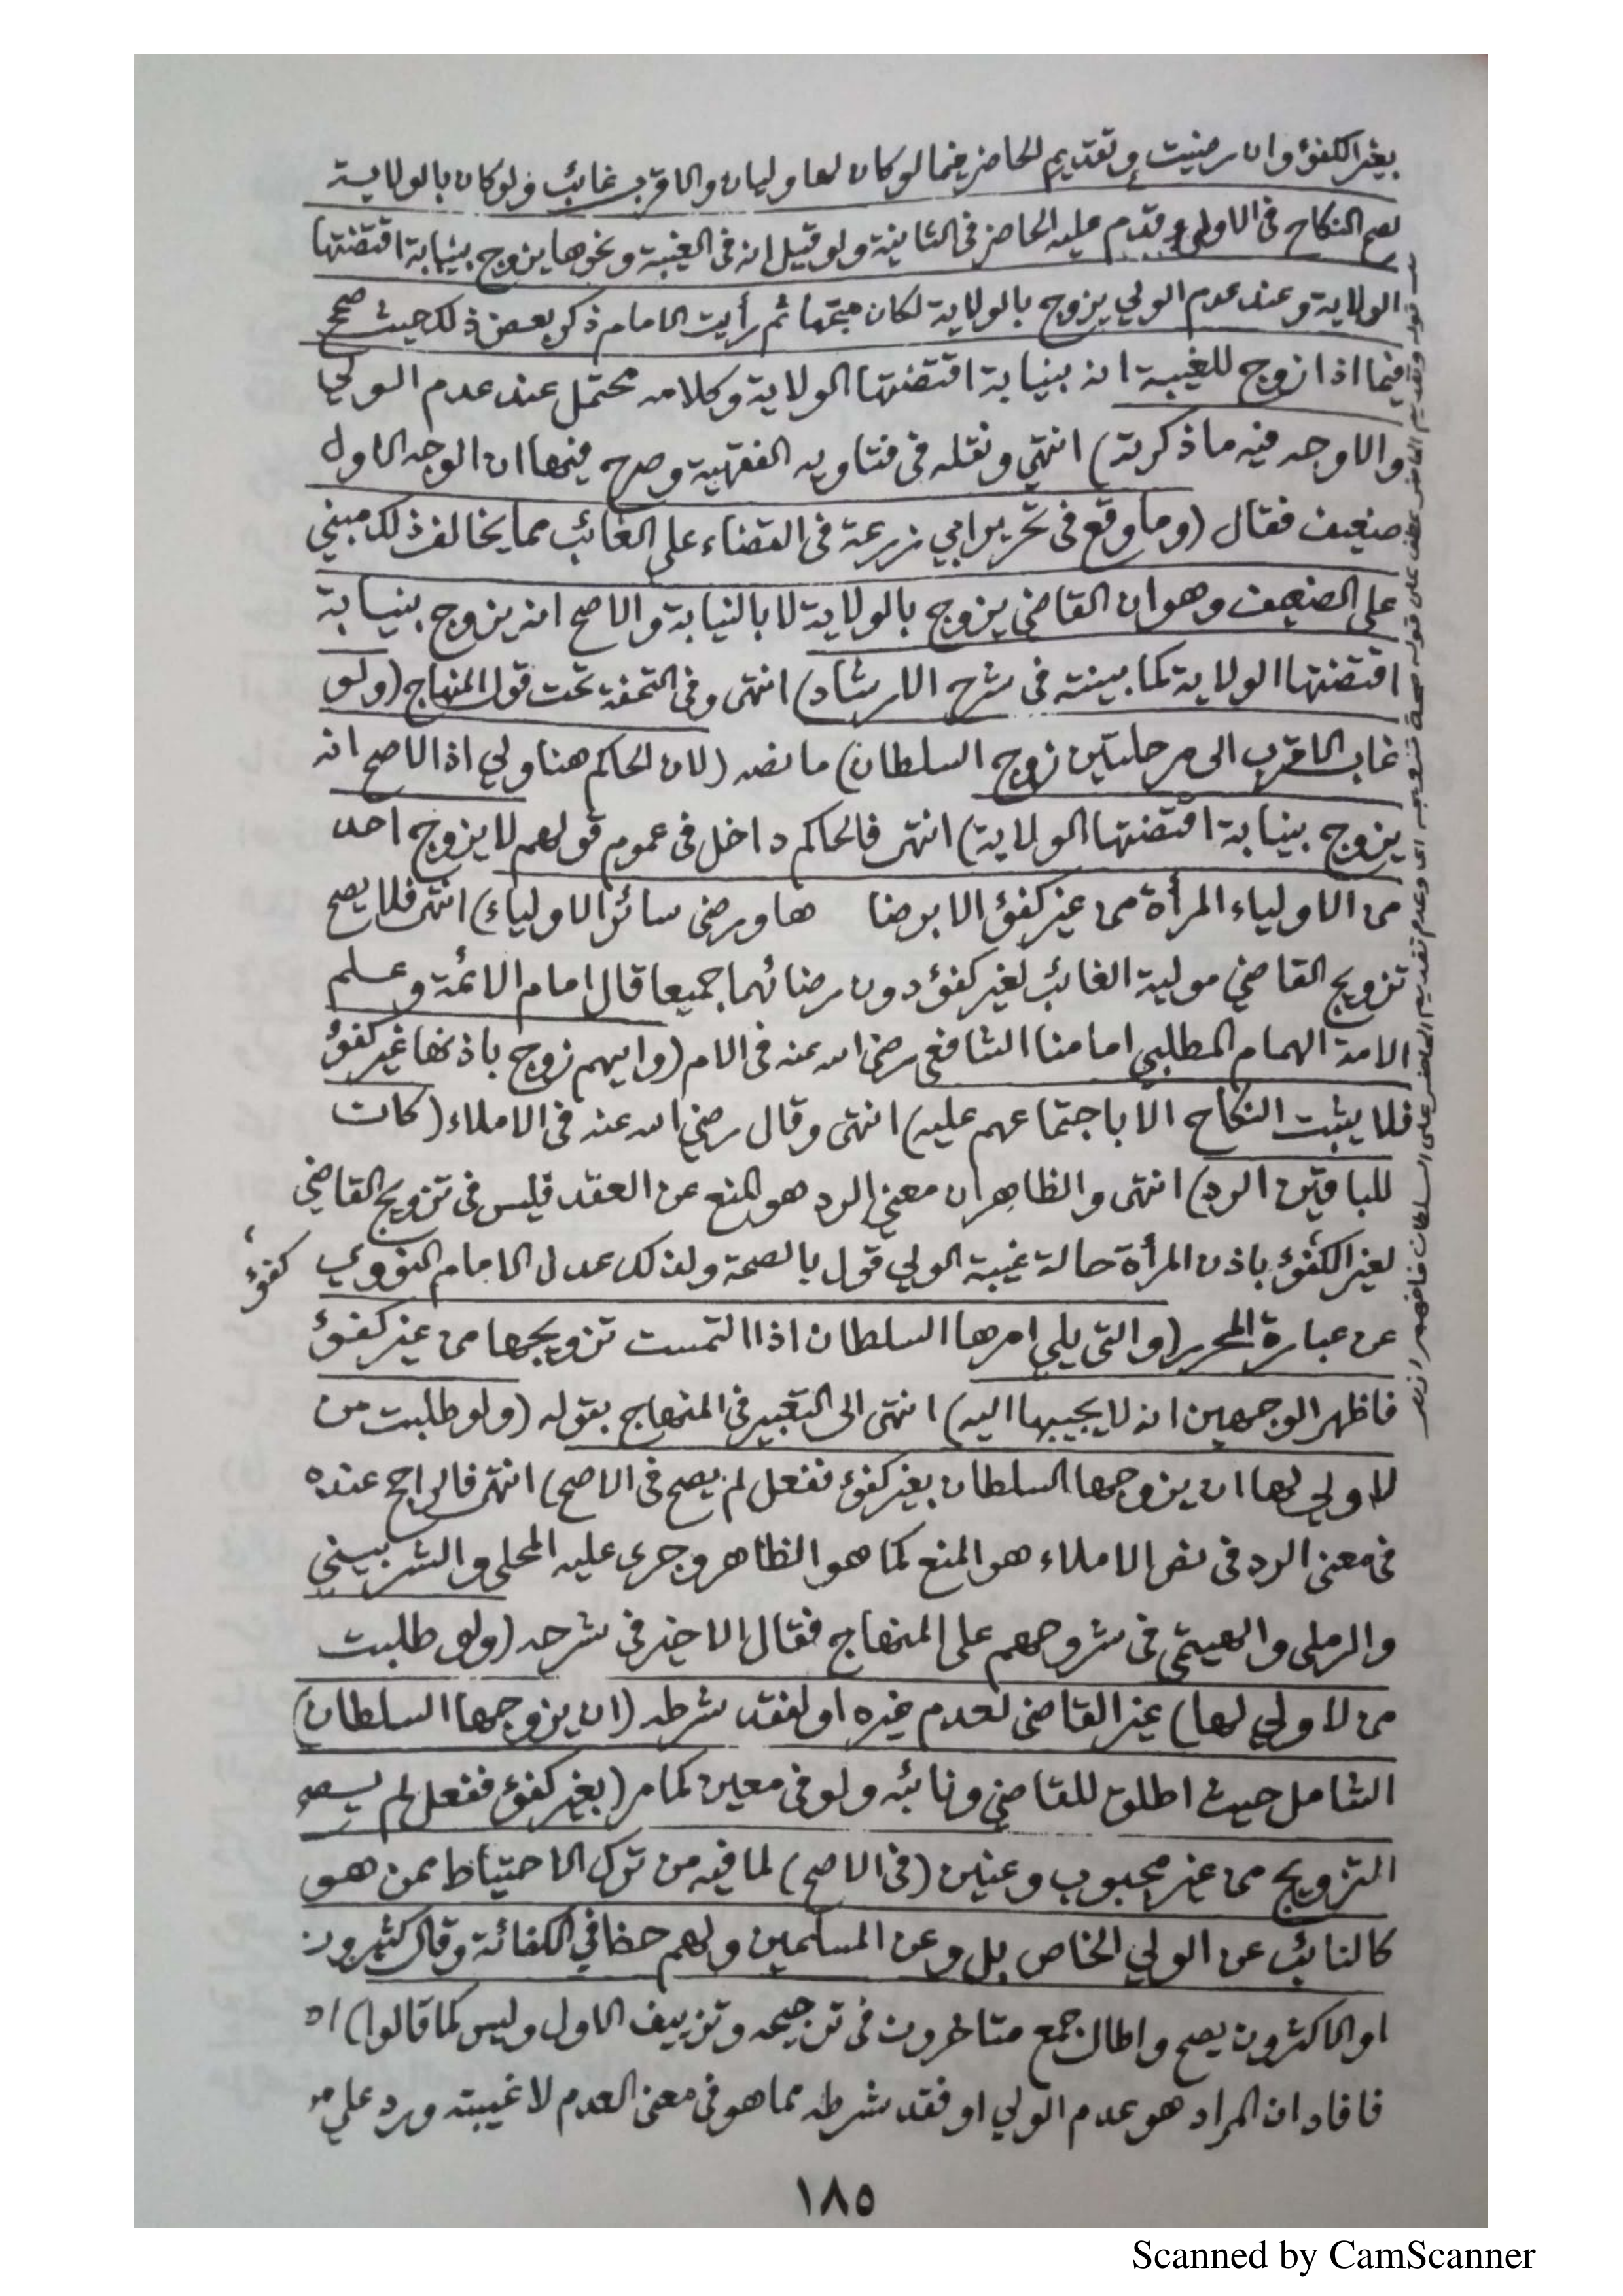 بغير الكفؤ وان رضيت وتقديم الحاضر فيما لو كان لها وليان والاقرب غائب ولو كان بالولاية
لصح النكاح فى الاولى وقدم عليه الحاضر فى الثانية ولو قيل انه فى الغيبة ونحوها يزوج بنيابة اقتضتها
الولاية وعند عدم الولي يزوج بالولاية لكان متجها ثم رأيت الامام ذكر بعض ذلك حيث صحح
فيما اذا زوج للغيبة انه بنيابة اقتضتها الولاية وكلامه محتمل عند عدم الولي
والاوجه فيه ما ذكرته) انتهى ونقله فى فتاويه الفقهية وصرح فيها ان الوجه الاول
ضعيف فقال (وما وقع فى تحرير ابي زرعة فى القضاء على الغائب مما يخالف ذلك مبني
على الضعيف وهو ان القاضي يزوج بالولاية لا بالنيابة والاصح انه يزوج بنيابة
اقتضتها الولاية كما بينته فى شرح الارشاد) انتهى وفى التحفة تحت قول المنهاج (ولو
غاب الاقرب الى مرحلتين زوج السلطان) ما نصه (لان الحاكم هنا ولي اذ الاصح انه
يزوج بنيابة اقتضتها الولاية) انتهى فالحاكم داخل فى عموم قولهم لا يزوج احد
من الاولياء المرأة من غير كفؤ الا برضا ها ورضى سائر الاولياء) انتهى فلا يصح
تزويج القاضي مولية الغائب لغير كفؤ دون رضائهما جميعا قال امام الائمة وعلم
الامة الهمام المطلبي امامنا الشافعي رضى الله عنه فى الام (وايهم زوج باذنها غير كفؤ
فلا يثبت النكاح الا باجتماعهم عليه) انتهى وقال رضي الله عنه فى الاملاء (كان
للباقين الرد) انتهى والظاهر ان معنى الرد هو المنع عن العقد فليس فى تزويج القاضي
لغير الكفؤ باذن المرأة حالة غيبة الولي قول بالصحة ولذلك عدل الامام النووي
كفؤ
عن عبارة المحرر (والتى يلي امرها السلطان اذا التمست تزويجها من غير كفؤ
فاظهر الوجهين انه لا يجيبها اليه) انتهى الى التعبير فى المنهاج بقوله (ولو طلبت من
لا ولي لها ان يزوجها السلطان بغير كفؤ ففعل لم يصح فى الاصح) انتهى فالراجح عنده
فى معنى الرد فى نص الاملاء هو المنع كما هو الظاهر وجرى عليه المحلي والشربيني
والرملى والهيتمي فى شروحهم على المنهاج فقال الاخير فى شرحه (ولو طلبت
من لا ولي لها) غير القاضى لعدم غيره او لفقد شرطه (ان يزوجها السلطان)
الشامل حيث اطلق للقاضي ونائبه ولو فى معين كما مر (بغير كفؤ ففعل لم يصح
التزويج من غير مجبوب وعنين (فى الاصح) لما فيه من ترك الاحتياط ممن هو
كالنائب عن الولي الخاص بل وعن المسلمين ولهم حظ في الكفائة وقال كثيرون
او الاكثرون يصح واطال جمع متاخرون فى ترجيحه وتزييف الاول وليس كما قالوا) اه
فافاد ان المراد هو عدم الولي او فقد شرطه مما هو فى معنى العدم لا غيبته ورد على
قوله وتقديم الحاضر عطف على قوله صحة تزويجه اى وعدم تقديم الحاضر على السلطان فافهم
١٨٥
Scanned by CamScanner